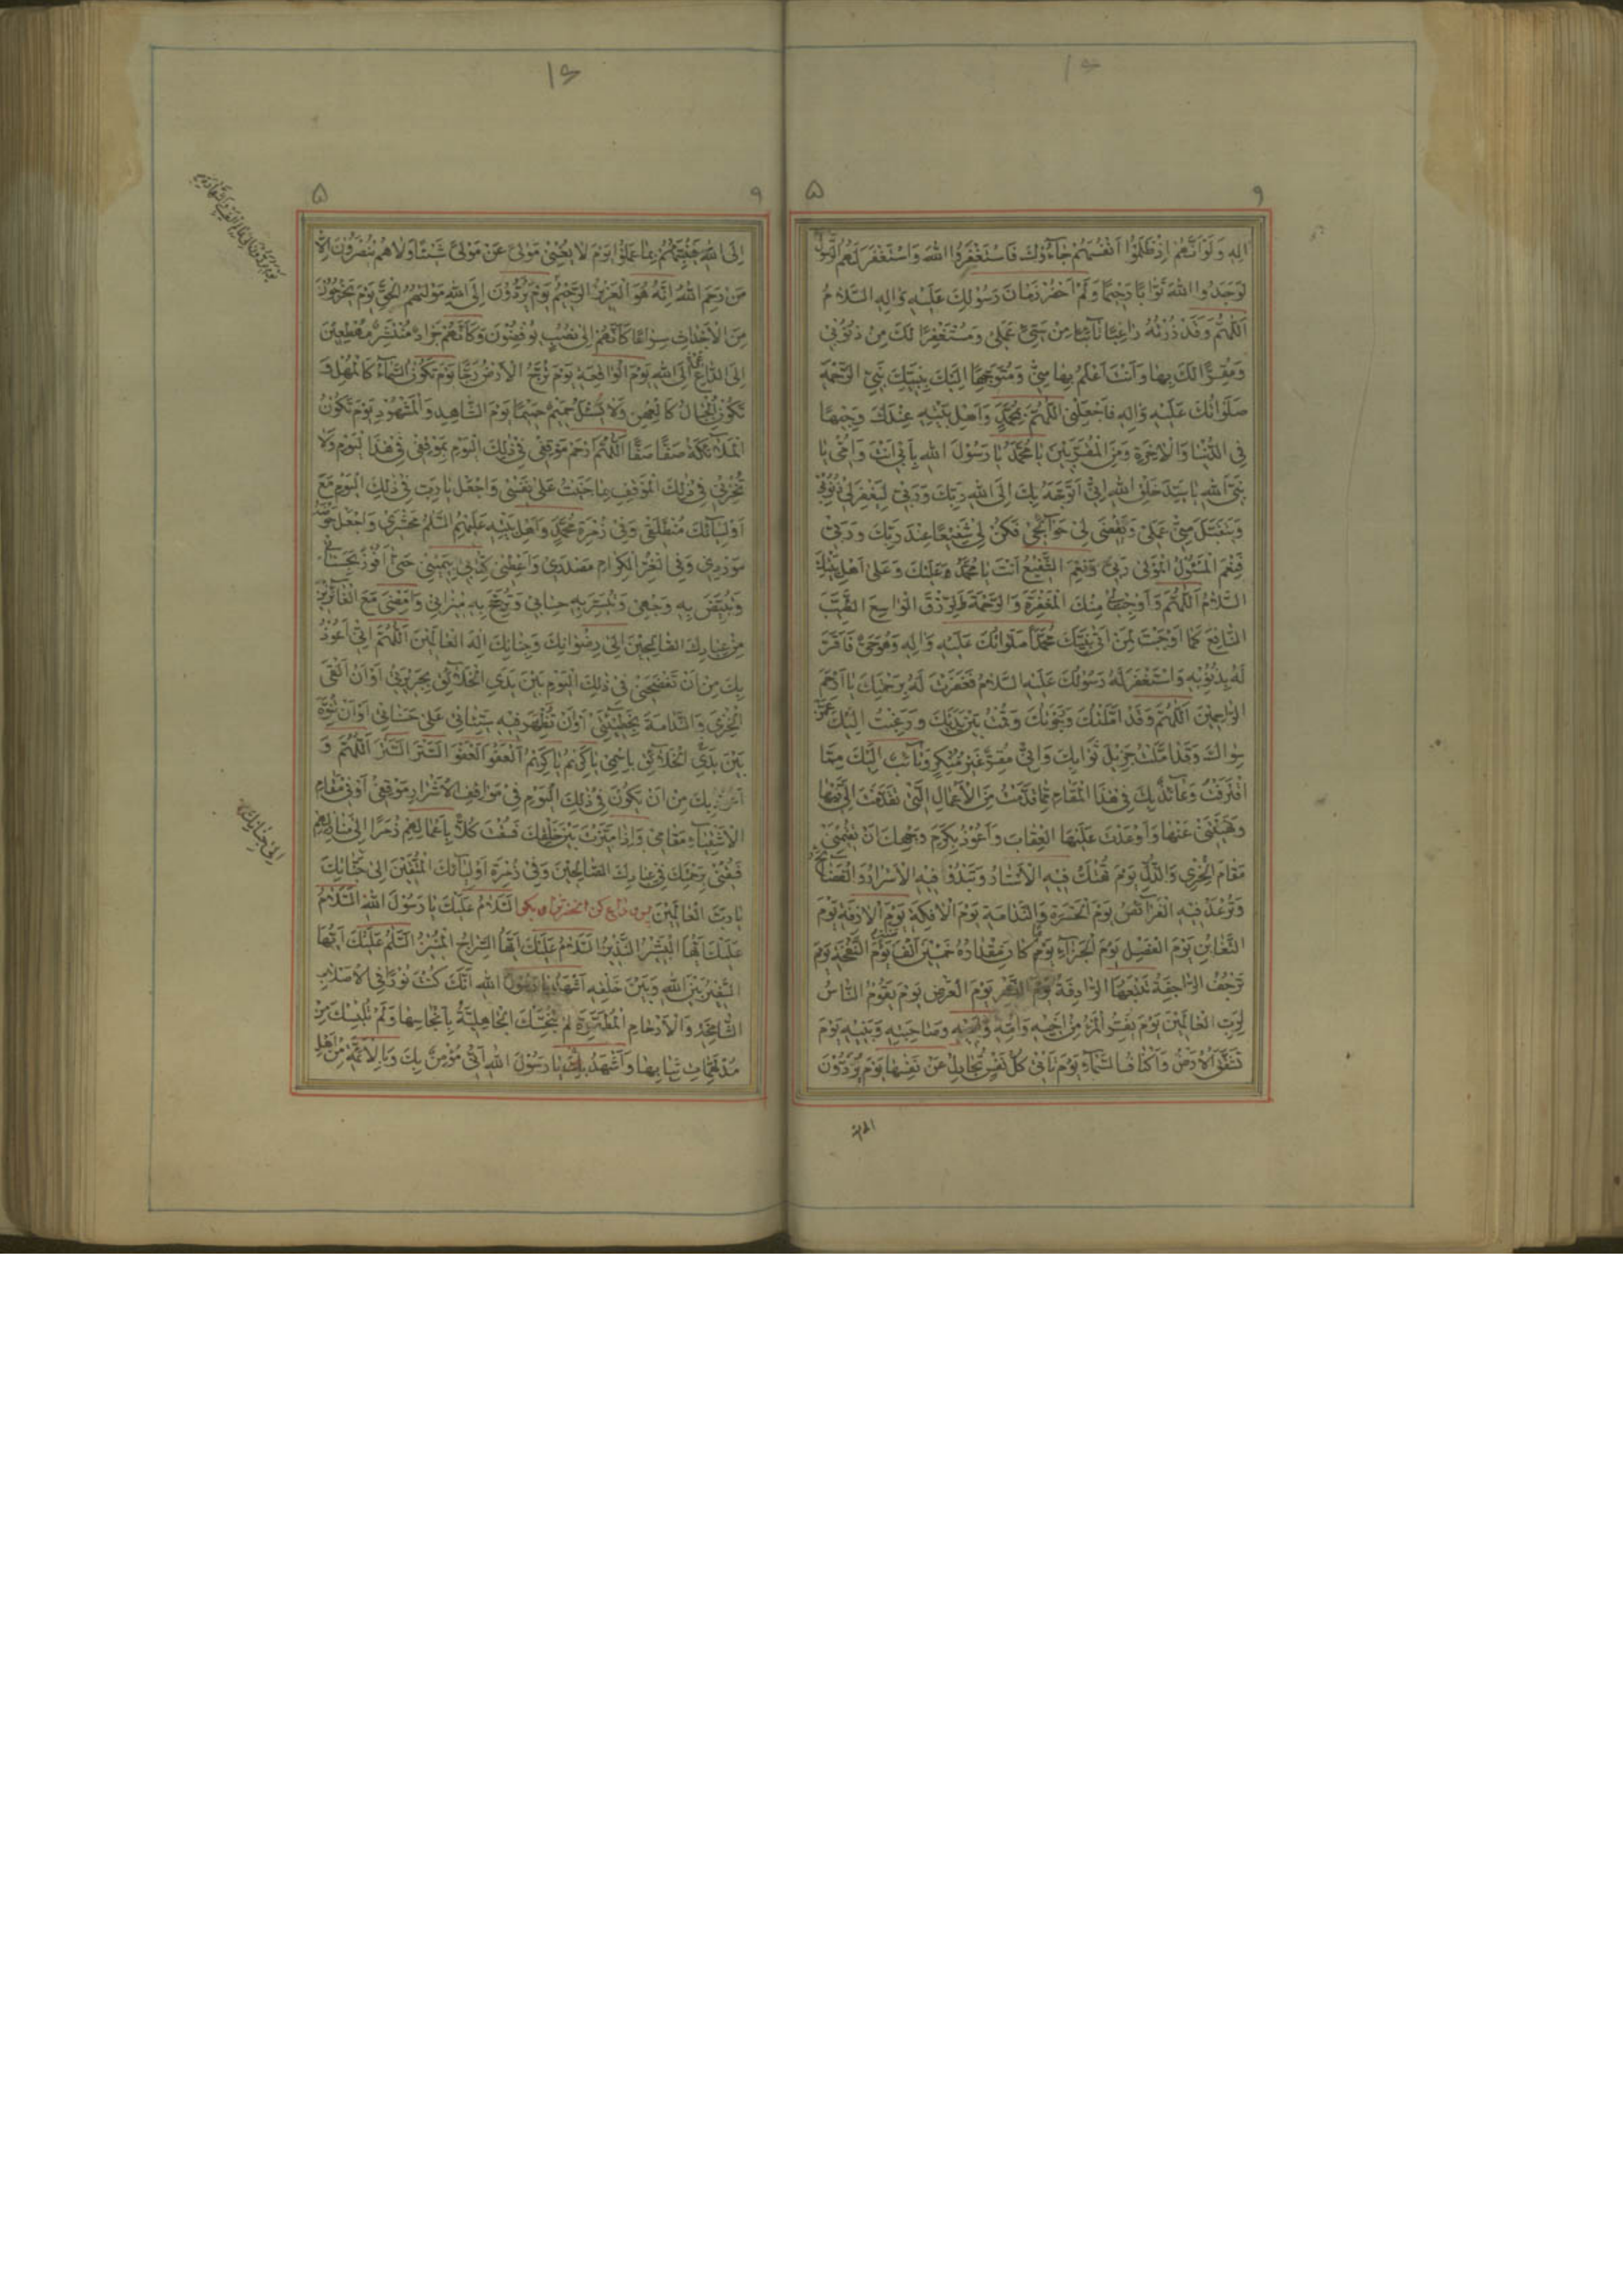 الِهِ وَلَوْ اَنَّهُمْ اِذْ ظَلَمُوْا اَنْفُسَهُمْ جَآءُوْكَ فَاسْتَغْفَرُوا اللهَ وَاسْتَغْفَرَ لَهُمُ الرَّسُوْلُ
لَوَجَدُوا اللهَ تَوَّابًا رَحِيْمًا وَلَمْ اَحْضُرْ زَمَانَ رَسُوْلِكَ عَلَيْهِ وَالِهِ السَّلَامُ
اَللّٰهُمَّ وَقَدْ زُرْتُهُ رَاغِبًا تَآئِبًا مِنْ سَيِّئِ عَمَلِيْ وَمُسْتَغْفِرًا لَكَ مِنْ ذُنُوْبِيْ
وَمُقِرًّا لَكَ بِهَا وَاَنْتَ اَعْلَمُ بِهَا مِنِّيْ وَمُتَوَجِّهًا اِلَيْكَ بِنَبِيِّكَ نَبِيِّ الرَّحْمَةِ
صَلَوَاتُكَ عَلَيْهِ وَالِهِ فَاجْعَلْنِي اللّٰهُمَّ بِمُحَمَّدٍ وَاَهْلِ بَيْتِهِ عِنْدَكَ وَجِيْهًا
فِي الدُّنْيَا وَالْاٰخِرَةِ وَمِنَ الْمُقَرَّبِيْنَ يَا مُحَمَّدُ يَا رَسُوْلَ اللهِ بِاَبِيْ اَنْتَ وَاُمِّيْ يَا
نَبِيَّ اللهِ يَا سَيِّدَ خَلْقِ اللهِ اِنِّيْ اَتَوَجَّهُ بِكَ اِلَى اللهِ رَبِّكَ وَرَبِّيْ لِيَغْفِرَ لِيْ ذُنُوْبِيْ
وَيَتَقَبَّلَ مِنِّيْ عَمَلِيْ وَيَقْضِيَ لِيْ حَوَآئِجِيْ فَكُنْ لِيْ شَفِيْعًا عِنْدَ رَبِّكَ وَرَبِّيْ
فَنِعْمَ الْمَسْئُوْلُ الْمَوْلٰى رَبِّيْ وَنِعْمَ الشَّفِيْعُ اَنْتَ يَا مُحَمَّدُ وَعَلَيْكَ وَعَلٰى اَهْلِ بَيْتِكَ
السَّلَامُ اَللّٰهُمَّ وَاَوْجِبْ لِيْ مِنْكَ الْمَغْفِرَةَ وَالرَّحْمَةَ وَالرِّزْقَ الْوَاسِعَ الطَّيِّبَ
النَّافِعَ كَمَا اَوْجَبْتَ لِمَنْ اَتٰى نَبِيَّكَ مُحَمَّدًا صَلَوَاتُكَ عَلَيْهِ وَالِهِ وَهُوَ حَيٌّ فَاَقَرَّ
لَهُ بِذُنُوْبِهِ وَاسْتَغْفَرَ لَهُ رَسُوْلُكَ عَلَيْهِ السَّلَامُ فَغَفَرْتَ لَهُ بِرَحْمَتِكَ يَا اَرْحَمَ
الرَّاحِمِيْنَ اَللّٰهُمَّ وَقَدْ اَمَّلْتُكَ وَرَجَوْتُكَ وَقُمْتُ بَيْنَ يَدَيْكَ وَرَغِبْتُ اِلَيْكَ عَمَّنْ
سِوَاكَ وَقَدْ اَمَّلْتُ جَزِيْلَ ثَوَابِكَ وَاِنِّيْ مُقِرٌّ غَيْرُ مُنْكِرٍ وَتَآئِبٌ اِلَيْكَ مِمَّا
اقْتَرَفْتُ وَعَآئِذٌ بِكَ فِيْ هٰذَا الْمَقَامِ مِمَّا قَدَّمْتُ مِنَ الْاَعْمَالِ الَّتِيْ تَقَدَّمْتَ اِلَيَّ فِيْهَا
وَنَهَيْتَنِيْ عَنْهَا وَاَوْعَدْتَ عَلَيْهَا الْعِقَابَ وَاَعُوْذُ بِكَرَمِ وَجْهِكَ اَنْ تُقِيْمَنِيْ
مَقَامَ الْخِزْيِ وَالذُّلِّ يَوْمَ تُهْتَكُ فِيْهِ الْاَسْتَارُ وَتَبْدُوْ فِيْهِ الْاَسْرَارُ وَالْفَضَآئِحُ
وَتُرْعَدُ فِيْهِ الْفَرَآئِصُ يَوْمَ الْحَسْرَةِ وَالنَّدَامَةِ يَوْمَ الْاٰفِكَةِ يَوْمَ الْاٰزِفَةِ يَوْمَ
التَّغَابُنِ يَوْمَ الْفَصْلِ يَوْمَ الْجَزَآءِ يَوْمًا كَانَ مِقْدَارُهُ خَمْسِيْنَ اَلْفَ سَنَةٍ يَوْمَ النَّفْخَةِ يَوْمَ
تَرْجُفُ الرَّاجِفَةُ تَتْبَعُهَا الرَّادِفَةُ يَوْمَ النَّشْرِ يَوْمَ الْعَرْضِ يَوْمَ يَقُوْمُ النَّاسُ
لِرَبِّ الْعَالَمِيْنَ يَوْمَ يَفِرُّ الْمَرْءُ مِنْ اَخِيْهِ وَاُمِّهِ وَاَبِيْهِ وَصَاحِبَتِهِ وَبَنِيْهِ يَوْمَ
تَشَقَّقُ الْاَرْضُ وَاَكْنَافُ السَّمَآءِ يَوْمَ تَاْتِيْ كُلُّ نَفْسٍ تُجَادِلُ عَنْ نَفْسِهَا يَوْمَ يُرَدُّوْنَ
اِلَى اللهِ فَيُنَبِّئُهُمْ بِمَا عَمِلُوْا يَوْمَ لَا يُغْنِيْ مَوْلًى عَنْ مَوْلًى شَيْئًا وَلَا هُمْ يُنْصَرُوْنَ اِلَّا
مَنْ رَحِمَ اللهُ اِنَّهُ هُوَ الْعَزِيْزُ الرَّحِيْمُ يَوْمَ يُرَدُّوْنَ اِلَى اللهِ مَوْلٰيهُمُ الْحَقِّ يَوْمَ يَخْرُجُوْنَ
مِنَ الْاَجْدَاثِ سِرَاعًا كَاَنَّهُمْ اِلٰى نُصُبٍ يُوْفِضُوْنَ وَكَاَنَّهُمْ جَرَادٌ مُنْتَشِرٌ مُهْطِعِيْنَ
اِلَى الدَّاعِ اِلَى اللهِ يَوْمَ الْوَاقِعَةِ يَوْمَ تُرَجُّ الْاَرْضُ رَجًّا يَوْمَ تَكُوْنُ السَّمَآءُ كَالْمُهْلِ وَ
تَكُوْنُ الْجِبَالُ كَالْعِهْنِ وَلَا يُسْئَلُ حَمِيْمٌ حَمِيْمًا يَوْمَ الشَّاهِدِ وَالْمَشْهُوْدِ يَوْمَ تَكُوْنُ
الْمَلَآئِكَةُ صَفًّا صَفًّا اَللّٰهُمَّ ارْحَمْ مَوْقِفِيْ فِيْ ذٰلِكَ الْيَوْمِ بِمَوْقِفِيْ فِيْ هٰذَا الْيَوْمِ وَلَا
تُخْزِنِيْ فِيْ ذٰلِكَ الْمَوْقِفِ بِمَا جَنَيْتُ عَلٰى نَفْسِيْ وَاجْعَلْ يَا رَبِّ فِيْ ذٰلِكَ الْيَوْمِ مَعَ
اَوْلِيَآئِكَ مُنْطَلَقِيْ وَفِيْ زُمْرَةِ مُحَمَّدٍ وَاَهْلِ بَيْتِهِ عَلَيْهِمُ السَّلٰمُ مَحْشَرِيْ وَاجْعَلْ حَوْضَهُ
مَوْرِدِيْ وَفِي الْغُرِّ الْكِرَامِ مَصْدَرِيْ وَاَعْطِنِيْ كِتَابِيْ بِيَمِيْنِيْ حَتّٰى اَفُوْزَ بِحَسَنَاتِيْ
وَتُبَيِّضَ بِهِ وَجْهِيْ وَتُيَسِّرَ بِهِ حِسَابِيْ وَتُرَجِّحَ بِهِ مِيْزَانِيْ وَاَمْضِيَ مَعَ الْفَآئِزِيْنَ
مِنْ عِبَادِكَ الصَّالِحِيْنَ اِلٰى رِضْوَانِكَ وَجِنَانِكَ اِلٰهَ الْعَالَمِيْنَ اَللّٰهُمَّ اِنِّيْ اَعُوْذُ
بِكَ مِنْ اَنْ تَفْضَحَنِيْ فِيْ ذٰلِكَ الْيَوْمِ بَيْنَ يَدَيِ الْخَلَآئِقِ بِجَرِيْرَتِيْ اَوْ اَنْ اَلْقَى
الْخِزْيَ وَالنَّدَامَةَ بِخَطِيْئَتِيْ اَوْ اَنْ تُظْهِرَ فِيْهِ سَيِّئَاتِيْ عَلٰى حَسَنَاتِيْ اَوْ اَنْ تُنَوِّهَ
بَيْنَ يَدَيِ الْخَلَآئِقِ بِاسْمِيْ يَا كَرِيْمُ يَا كَرِيْمُ اَلْعَفْوَ اَلْعَفْوَ السَّتْرَ السَّتْرَ اَللّٰهُمَّ وَ
اَعُوْذُ بِكَ مِنْ اَنْ يَكُوْنَ فِيْ ذٰلِكَ الْيَوْمِ فِيْ مَوَاقِفِ الْاَشْرَارِ مَوْقِفِيْ اَوْ فِيْ مَقَامِ
الْاَشْقِيَآءِ مَقَامِيْ وَاِذَا مَيَّزْتَ بَيْنَ خَلْقِكَ فَسُقْتَ كُلًّا بِاَعْمَالِهِمْ زُمَرًا اِلٰى مَنَازِلِهِمْ
فَسُقْنِيْ بِرَحْمَتِكَ فِيْ عِبَادِكَ الصَّالِحِيْنَ وَفِيْ زُمْرَةِ اَوْلِيَآئِكَ الْمُتَّقِيْنَ اِلٰى جَنَّاتِكَ
يَا رَبَّ الْعَالَمِيْنَ پس وداع کن انحضرترا و بگو اَلسَّلَامُ عَلَيْكَ يَا رَسُوْلَ اللهِ السَّلَامُ
عَلَيْكَ اَيُّهَا الْبَشِيْرُ النَّذِيْرُ اَلسَّلَامُ عَلَيْكَ اَيُّهَا السِّرَاجُ الْمُنِيْرُ السَّلٰمُ عَلَيْكَ اَيُّهَا
السَّفِيْرُ بَيْنَ اللهِ وَبَيْنَ خَلْقِهِ اَشْهَدُ يَا رَسُوْلَ اللهِ اَنَّكَ كُنْتَ نُوْرًا فِي الْاَصْلَابِ
الشَّامِخَةِ وَالْاَرْحَامِ الْمُطَهَّرَةِ لَمْ تُنَجِّسْكَ الْجَاهِلِيَّةُ بِاَنْجَاسِهَا وَلَمْ تُلْبِسْكَ مِنْ
مُدْلَهِمَّاتِ ثِيَابِهَا وَاَشْهَدُ يَا رَسُوْلَ اللهِ اَنِّيْ مُؤْمِنٌ بِكَ وَبِالْاَئِمَّةِ مِنْ اَهْلِ